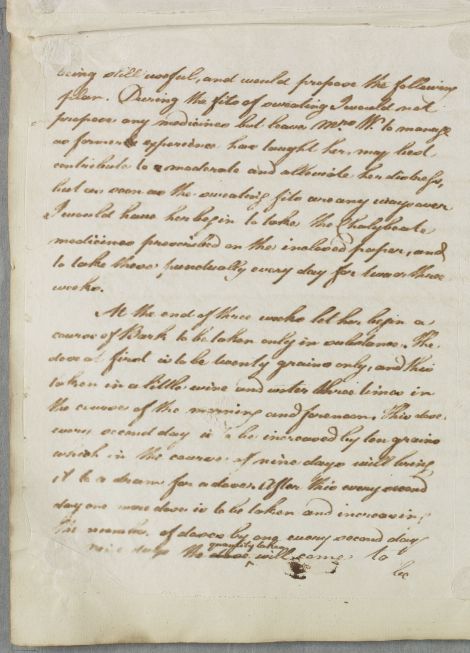 being still useful, and would propose the following
plan. During the fits of sweating I would not
propose any medicines but leave Mrs W. to manage
as former experience has taught her, may best
contribute to moderate and alleviate her distress,
but as soon as the sweating fits are any ways over
I would have her begin to take the Chalybeate
medicines prescribed on the inclosed paper, and
to take these punctually every day for two or three
weeks.
At the end of three weeks let her begin a
course of Bark to be taken only in substance. The
dose at first is to be twenty grains only, and this
taken in a little wine and water three times in
the course of the morning and forenoon. This dose
every second day is to be increased by ten grains
which in the course of nine days will bring
it to a dram for a dose. After this every second
day one more dose is to be taken and increasing
the number of doses by one every second day
nine days the quantity taken will come to
be